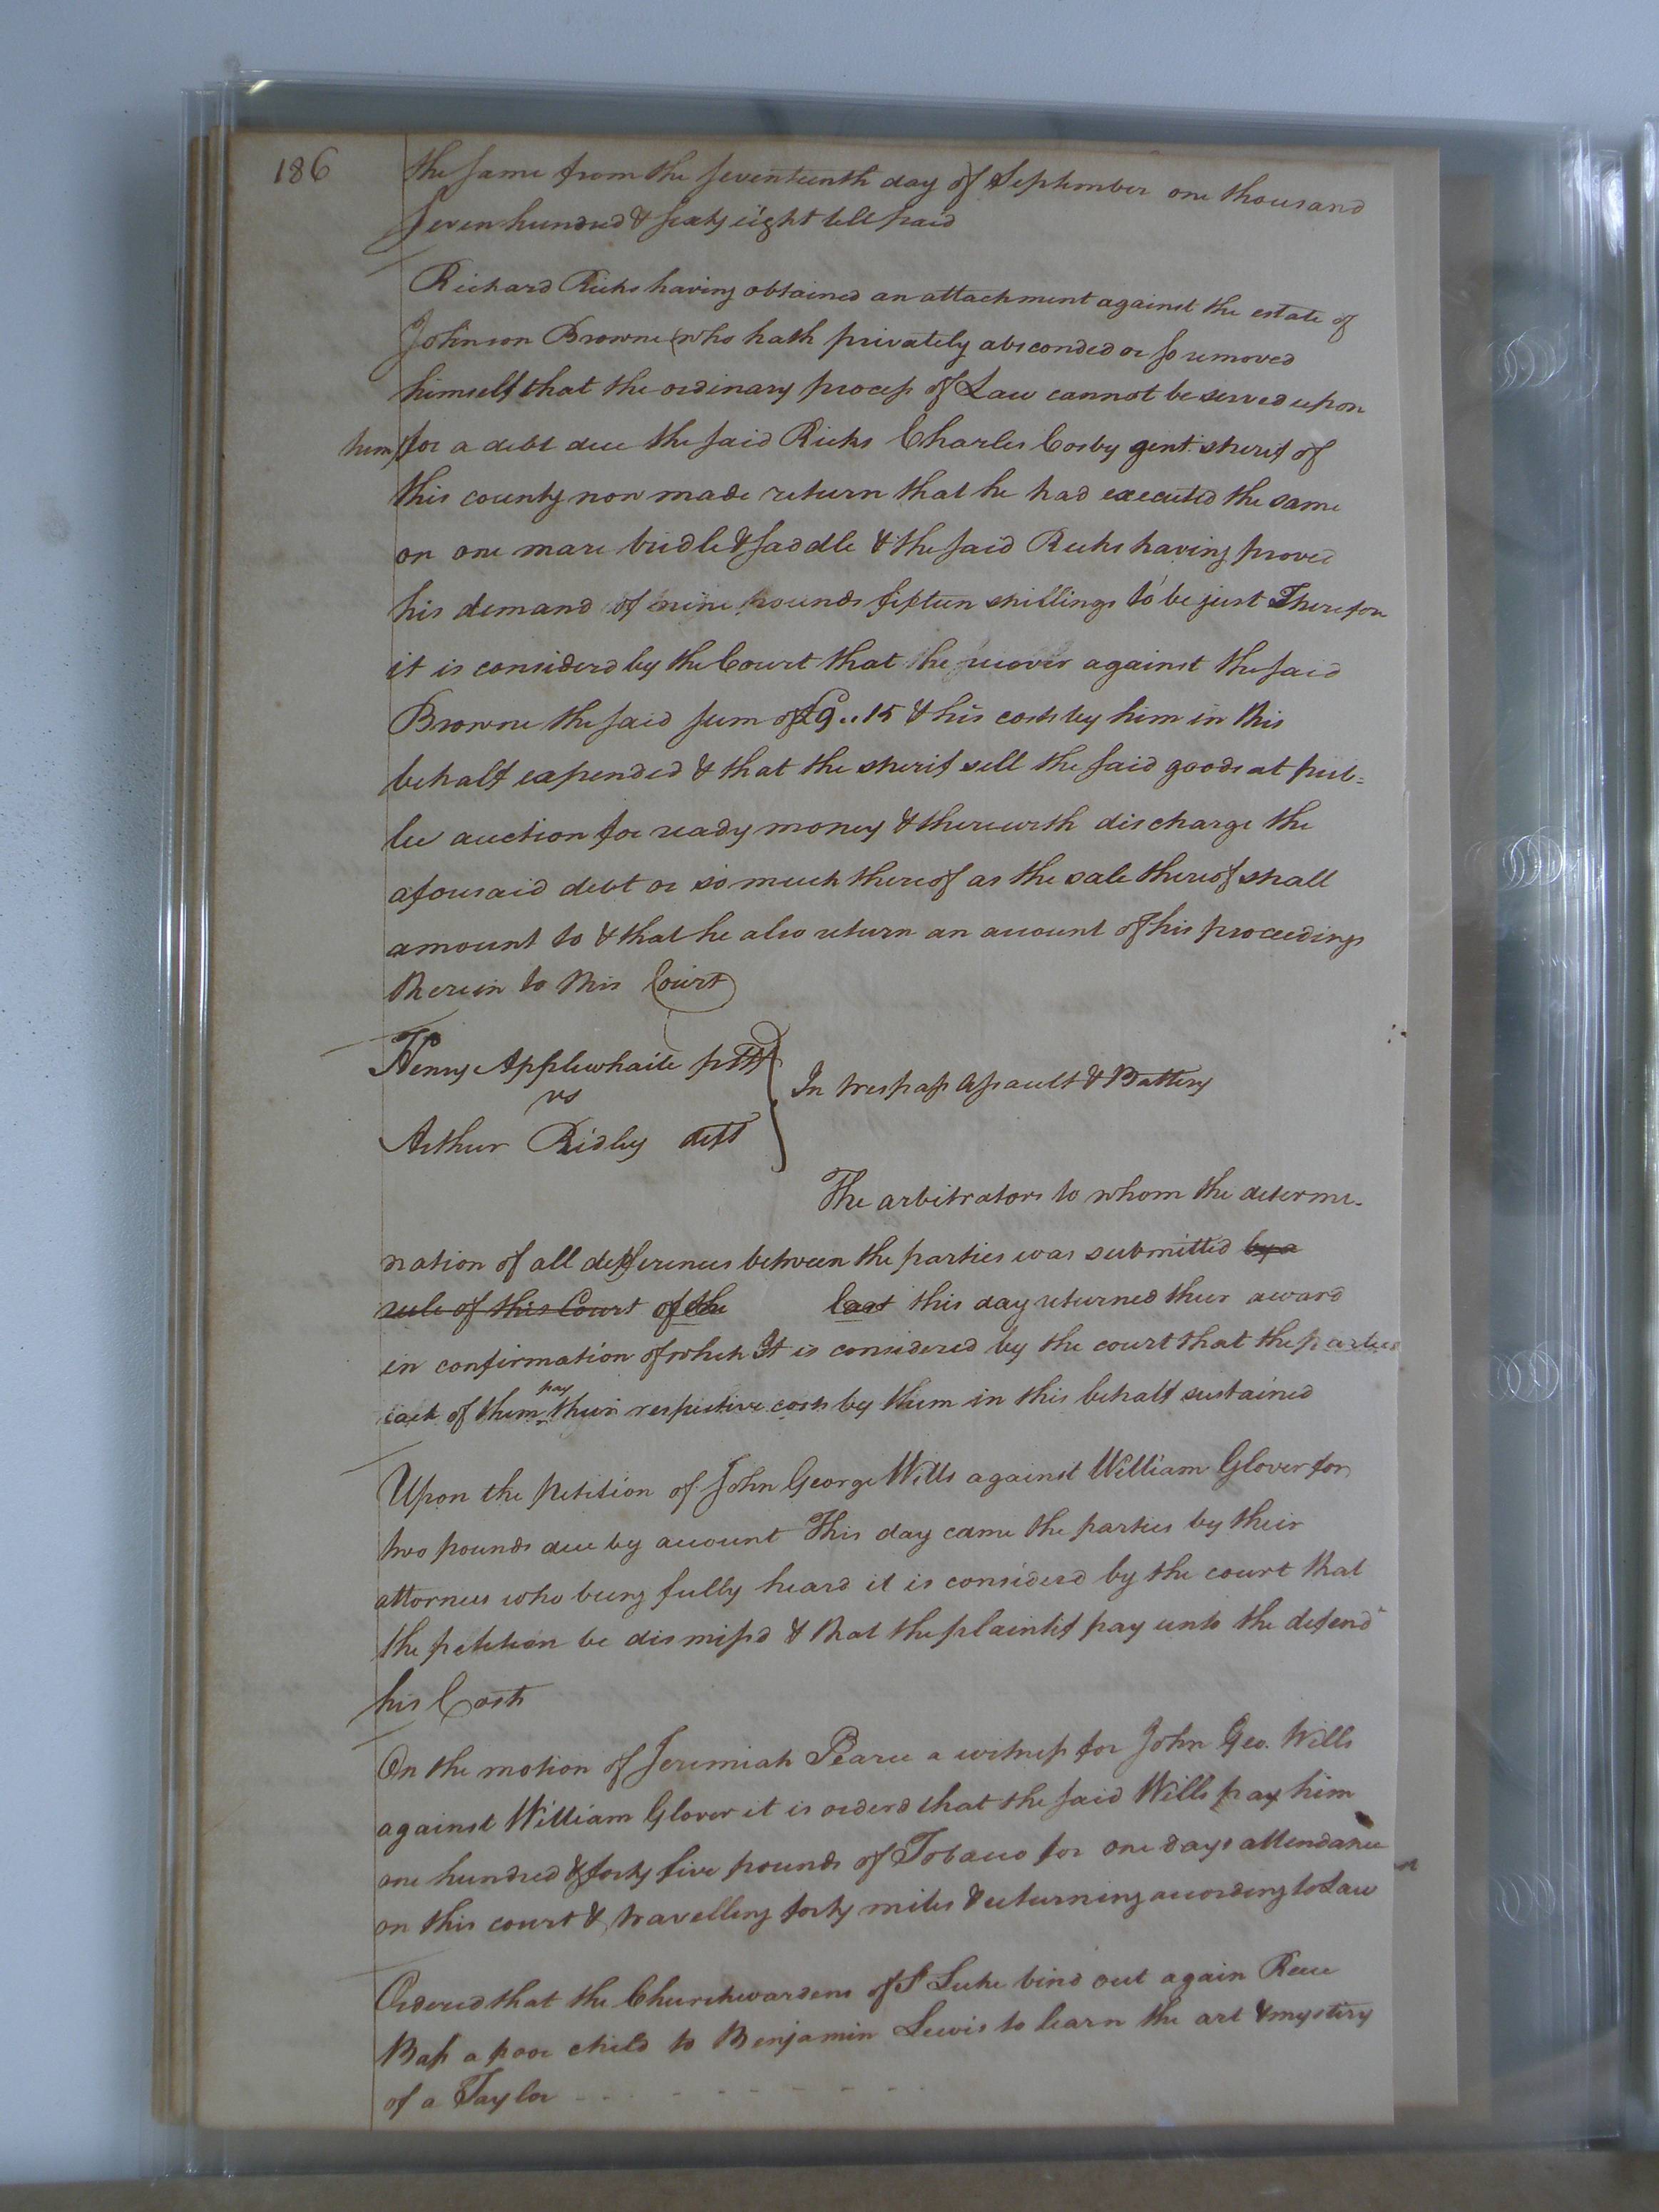 186
the same from the seventeenth day of September one thousand
seven hundred & sixty eight till paid
Richard Ricks having obtained an attachment against the estate of
Johnson Browne (who hath privately absconded or so removed
himself that the ordinary process of Law cannot be served upon
him) for a debt due the said Ricks Charles Cosby gent. sherif of
this county now made return that he had executed the same
on one mare bridle & saddle & the said Ricks having proved
his demand of nine pounds fifteen shillings to be just Therefore
it is considerd by the Court that he recover against the said
Browne the said sum of £9..15 & his costs by him in this
behalf expended & that the sherif sell the said goods at pub=
lic auction for ready money & therewith discharge the
aforesaid debt or so much thereof as the sale thereof shall
amount to & that he also return an account of his proceedings
therein to this Court
Henry Applewhaite pltf
vs
Arthur Ridley deft
In trespass assault & Battery
The arbitrators to whom the determi-
nation of all differences between the parties was submitted by a
rule of this Court of the last this day returned their award
in confirmation of which It is considered by the court that the parties
each of them pay their respective costs by them in this behalf sustained
Upon the petition of John George Wills against William Glover for
two pounds due by account This day came the parties by their
attornies who being fully heard it is considerd by the court that
the petition be dismissd & that the plaintif pay unto the defend
his Costs
On the motion of Jeremiah Pearce a witness for John Geo. Wills
against William Glover it is orderd that the said Wills pay him
one hundred & forty five pounds of Tobacco for one days attendance
on this court & travelling forty miles & returning according to Law
Ordered that the Churchwardens of St Luke bind out again
Bass a poor child to Benjamin Lewis to learn the art & mystery
of a Taylor